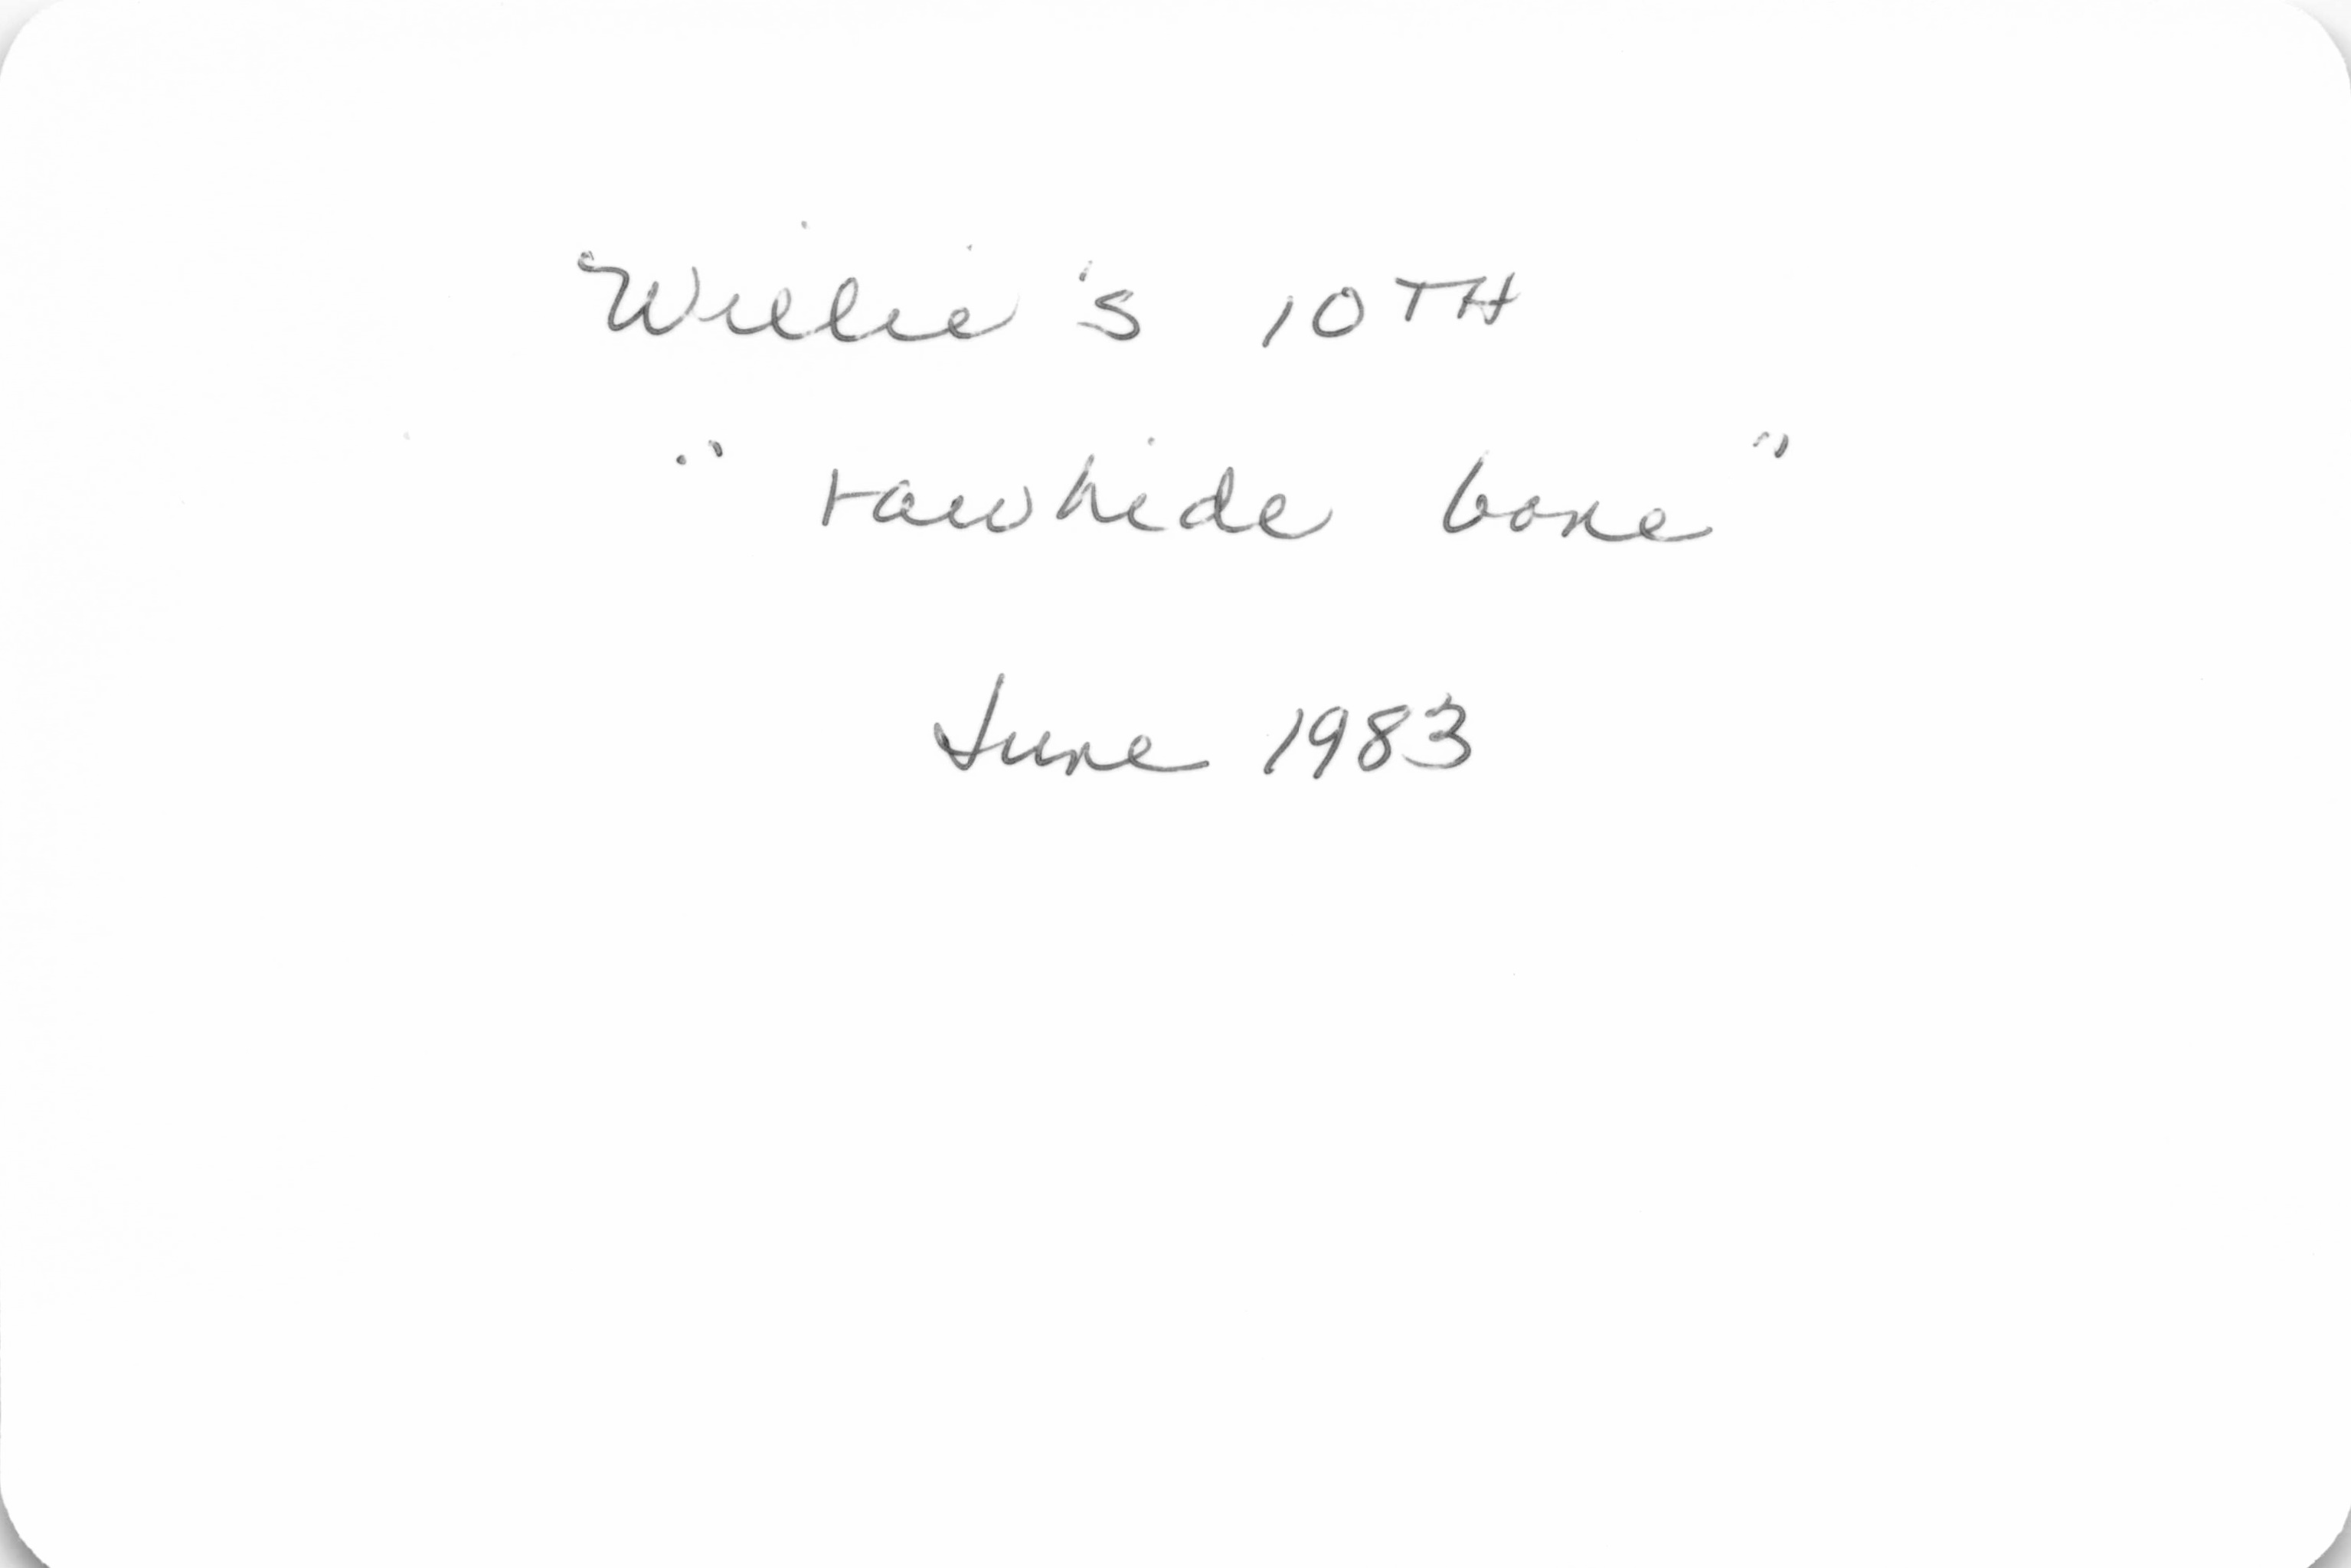 Willie's 10TH
"rawhide bone"
June 1983